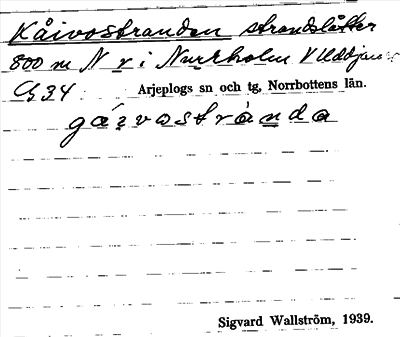 Kåivostranden strandslåtter
800 m N v i Norrholm V Uddjaur
G 34 Arjeplogs sn och tg, Norrbottens län.
gáivostránda
Sigvard Wallström, 1939.